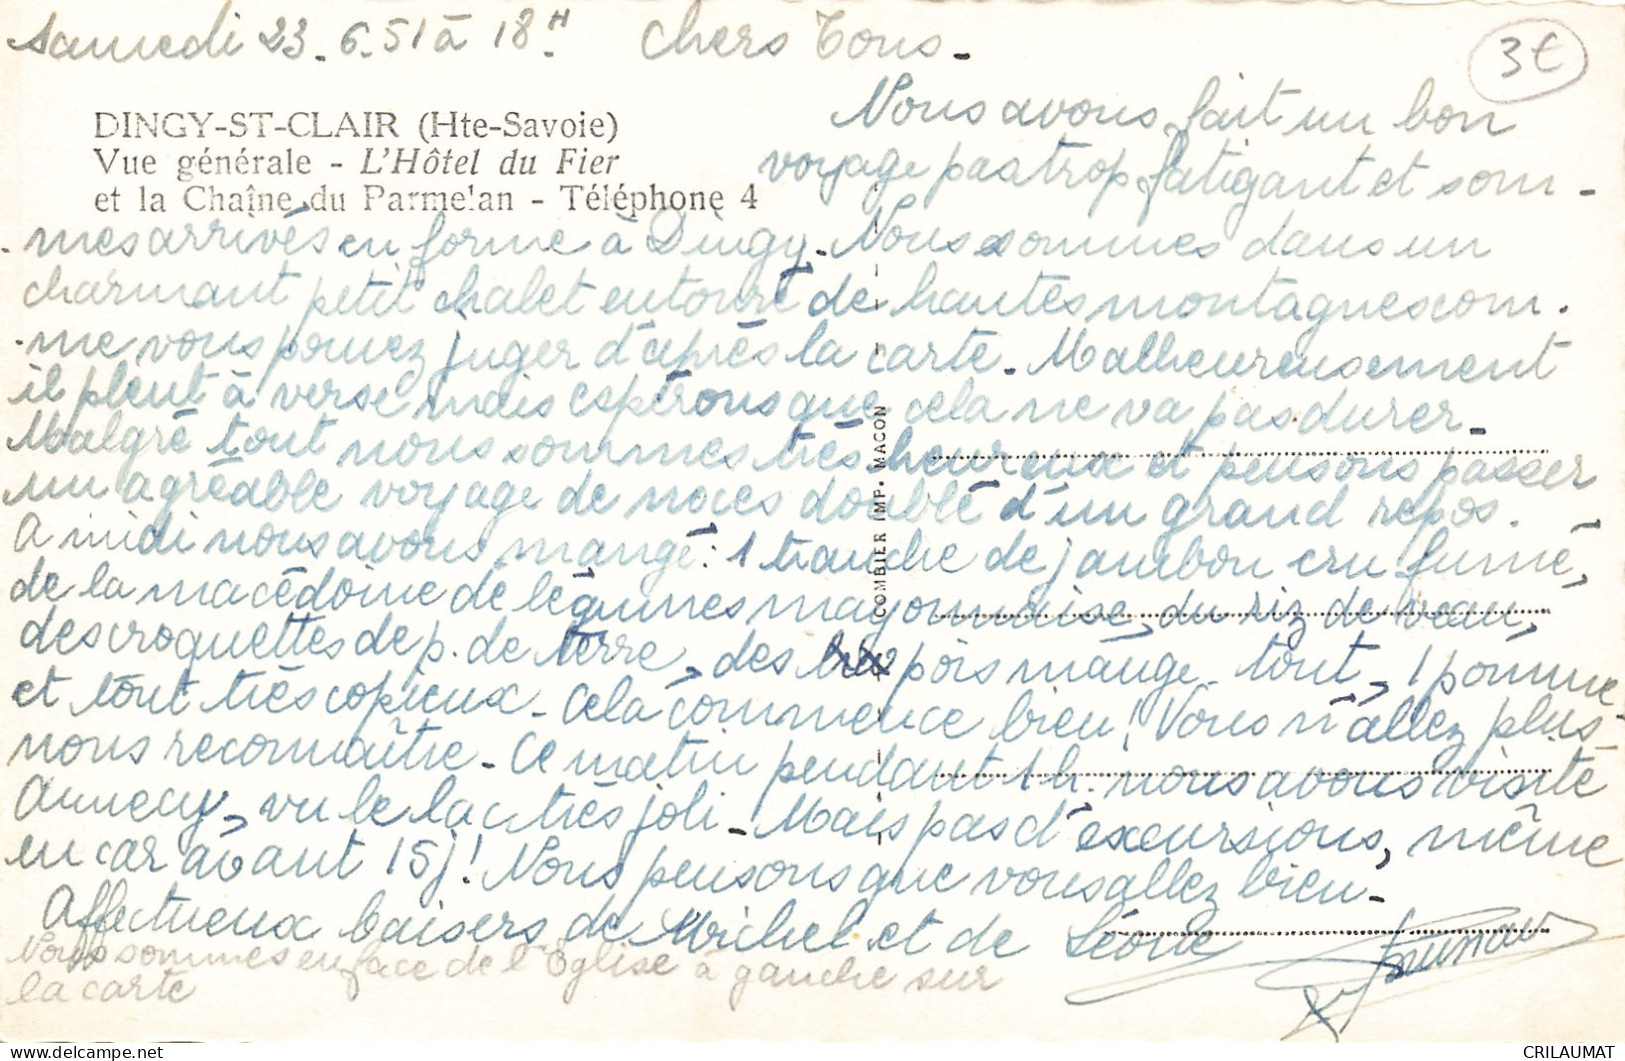 Samedi 23.6.51 à 18H. Chers Tous.
3€
DINGY-ST-CLAIR (Hte-Savoie)
Vue générale - L'Hôtel du Fier
et la Chaîne du Parmelan - Téléphone 4
Nous avons fait un bon
voyage pas trop fatigant et som-
-mes arrivés en forme à Dingy. Nous sommes dans un
charmant petit chalet entouré de hautes montagnes com-
-me vous pouvez juger d'après la carte. Malheureusement
il pleut à verse mais espérons que cela ne va pas durer.
Malgré tout nous sommes très heureux et pensons passer
un agréable voyage de noces doublé d'un grand repos.
A midi nous avons mangé : 1 tranche de jambon cru fumé,
de la macédoine de légumes mayonnaise, du riz de veau,
des croquettes de p. de terre, des pois mange-tout, 1 pomme
et tout très copieux. Cela commence bien! Vous n'allez plus
nous reconnaître. Ce matin pendant 1h. nous avons visité
Annecy, vu le lac très joli. Mais pas d'excursions, même
en car avant 15j! Nous pensons que vous allez bien.
Affectueux baisers de Michel et de Léone
Nous sommes en face de l'Eglise à gauche sur
la carte
COMBIER IMP. MACON
CRILAUMAT